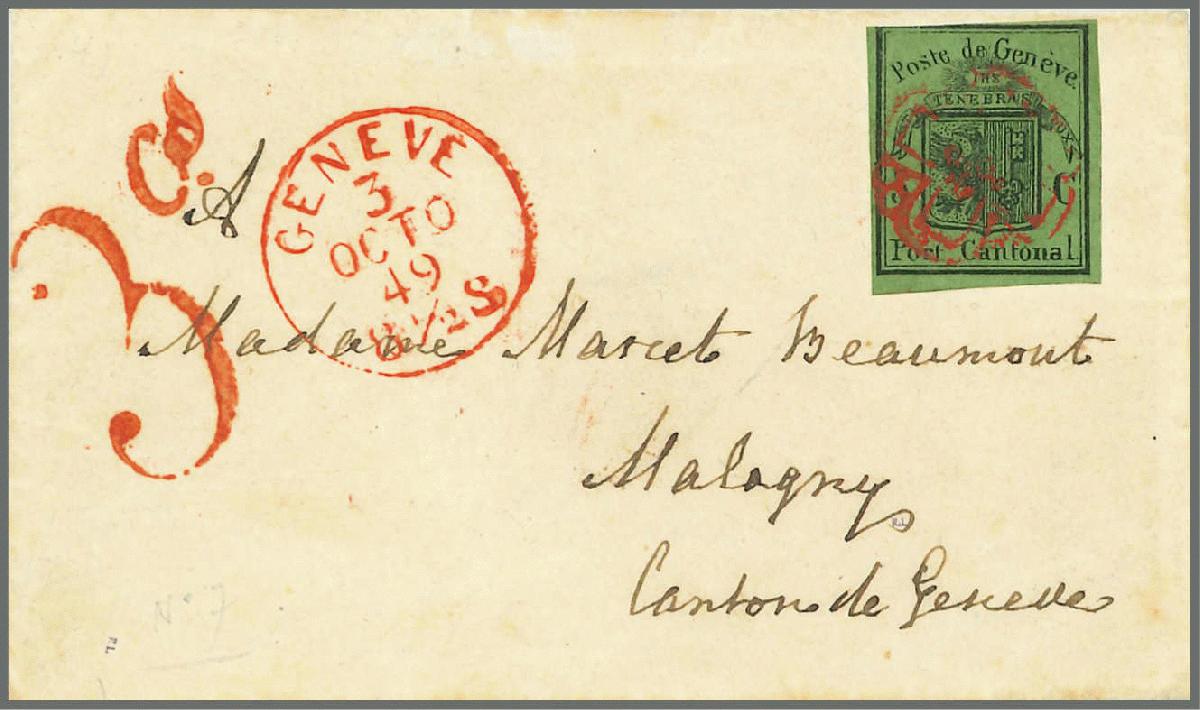 Poste de Genève.
TENEBRAS
LUX
C
Port Cantonal
3
Ct.
GENEVE
3
OCTO
49
8 1/2 S
A
Madame Marcet Beaumont
Malagny
Canton de Geneve